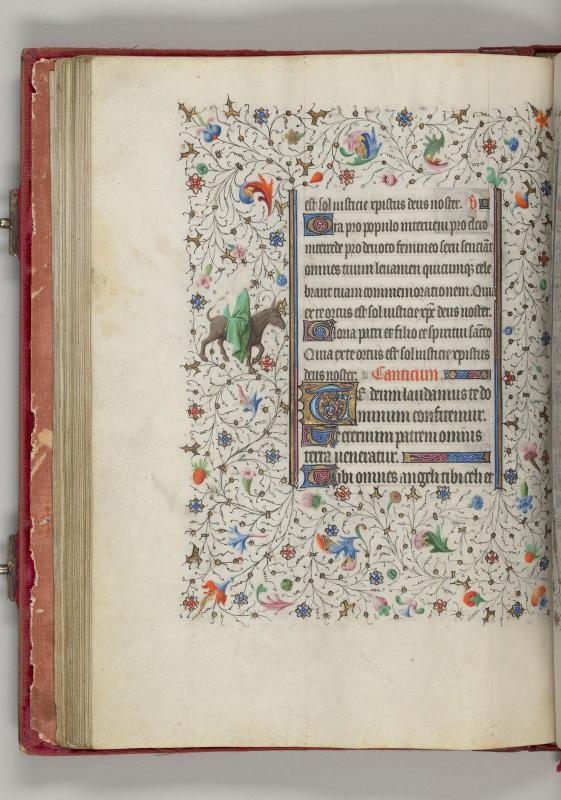 est sol iusticie xpistus deus noster. V
Ora pro populo interueni pro clero
intercede pro deuoto femineo sexu senciāt
omnes tuum leuamen quicumqꝫ cele
brant tuam commemorationem. Quia
ex te ortus est sol iusticie xp̄c deus noster.
Gloria patri et filio et spiritui sācto
Quia ex te ortus est sol iusticie xpistus
deus noster. Canticum.
Te deum laudamus te do
minum confitemur.
Te eternum patrem omnis
terra ueneratur.
Tibi omnes angeli tibi celi et